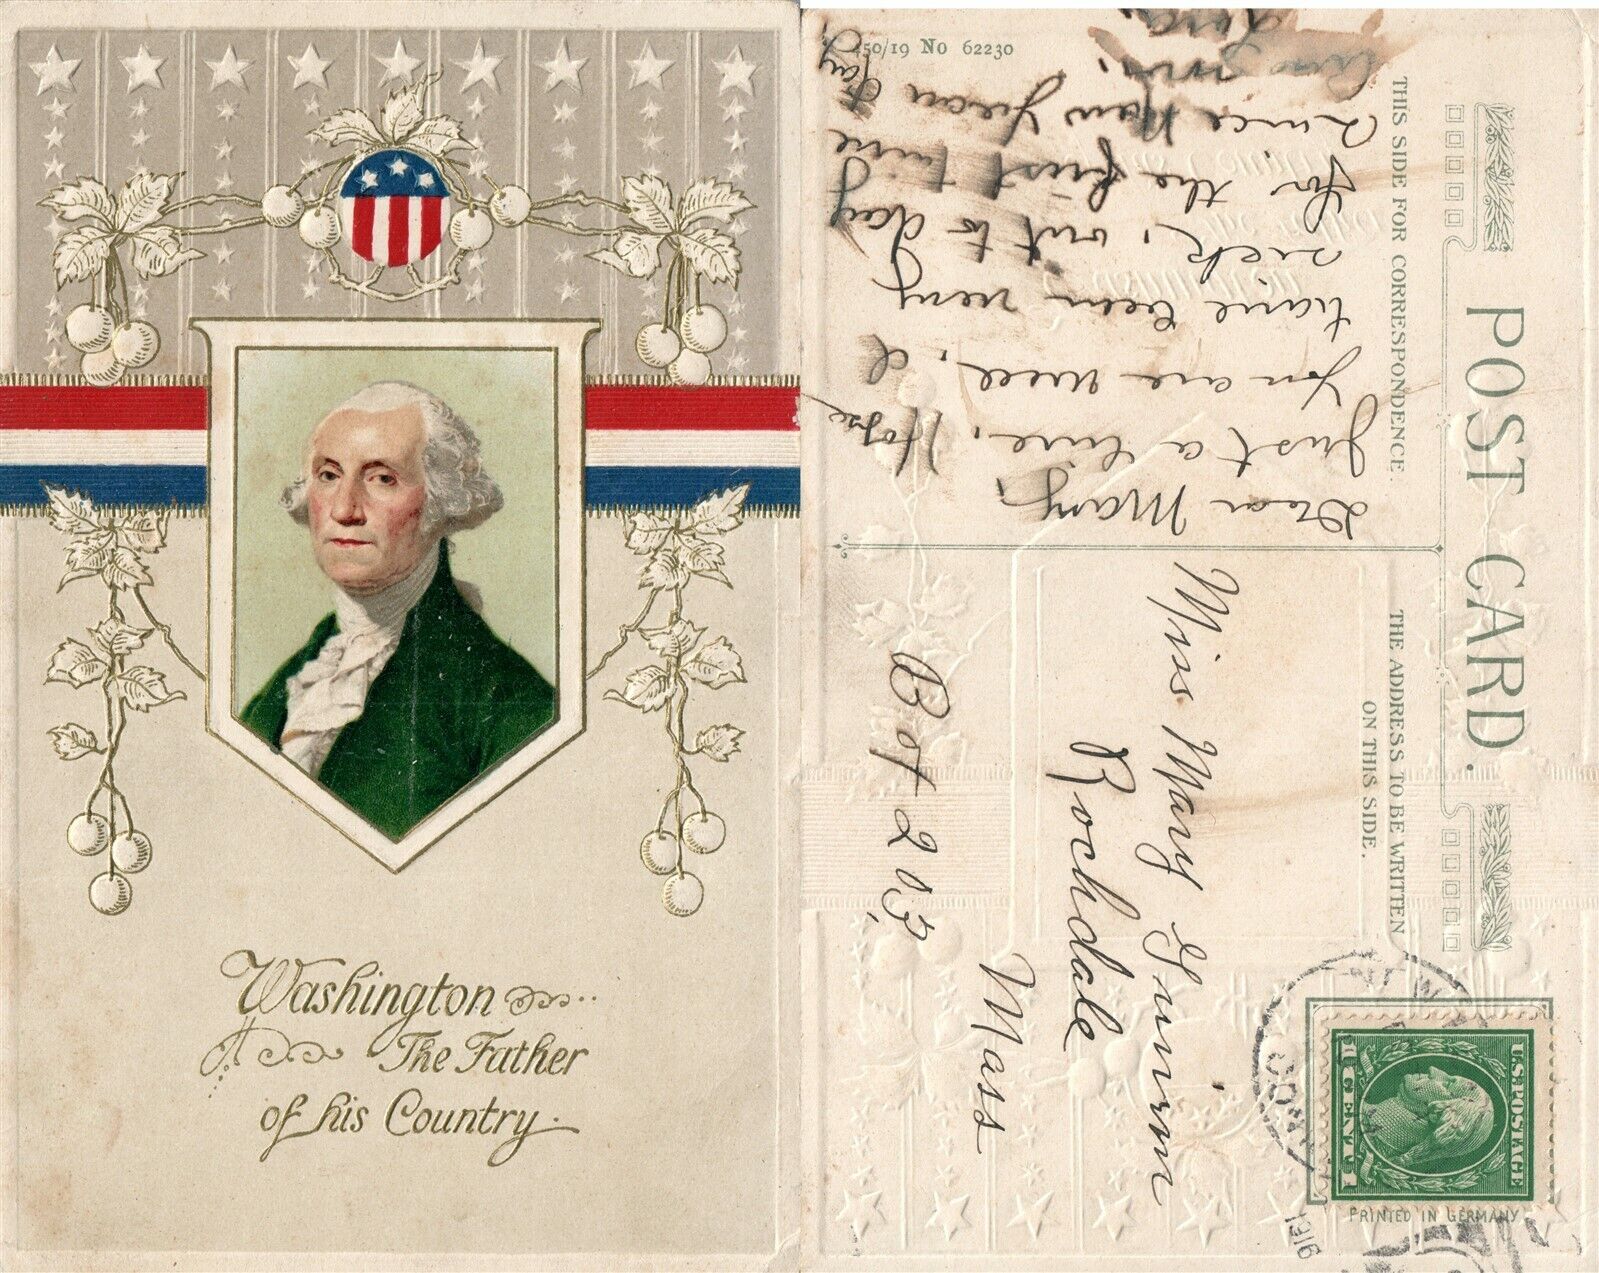 Washington
The Father
of his Country.
250/19 No 62230
POST CARD.
THIS SIDE FOR CORRESPONDENCE.
THE ADDRESS TO BE WRITTEN
ON THIS SIDE.
Dear Mary,
Just a line, Hope
you are well, I
have been very
sick, out to day
for the first time
since New Years Day
Miss Mary
Rochdale
Mass
Box 203
U.S. POSTAGE
1 CENT 1
PRINTED IN GERMANY
1916